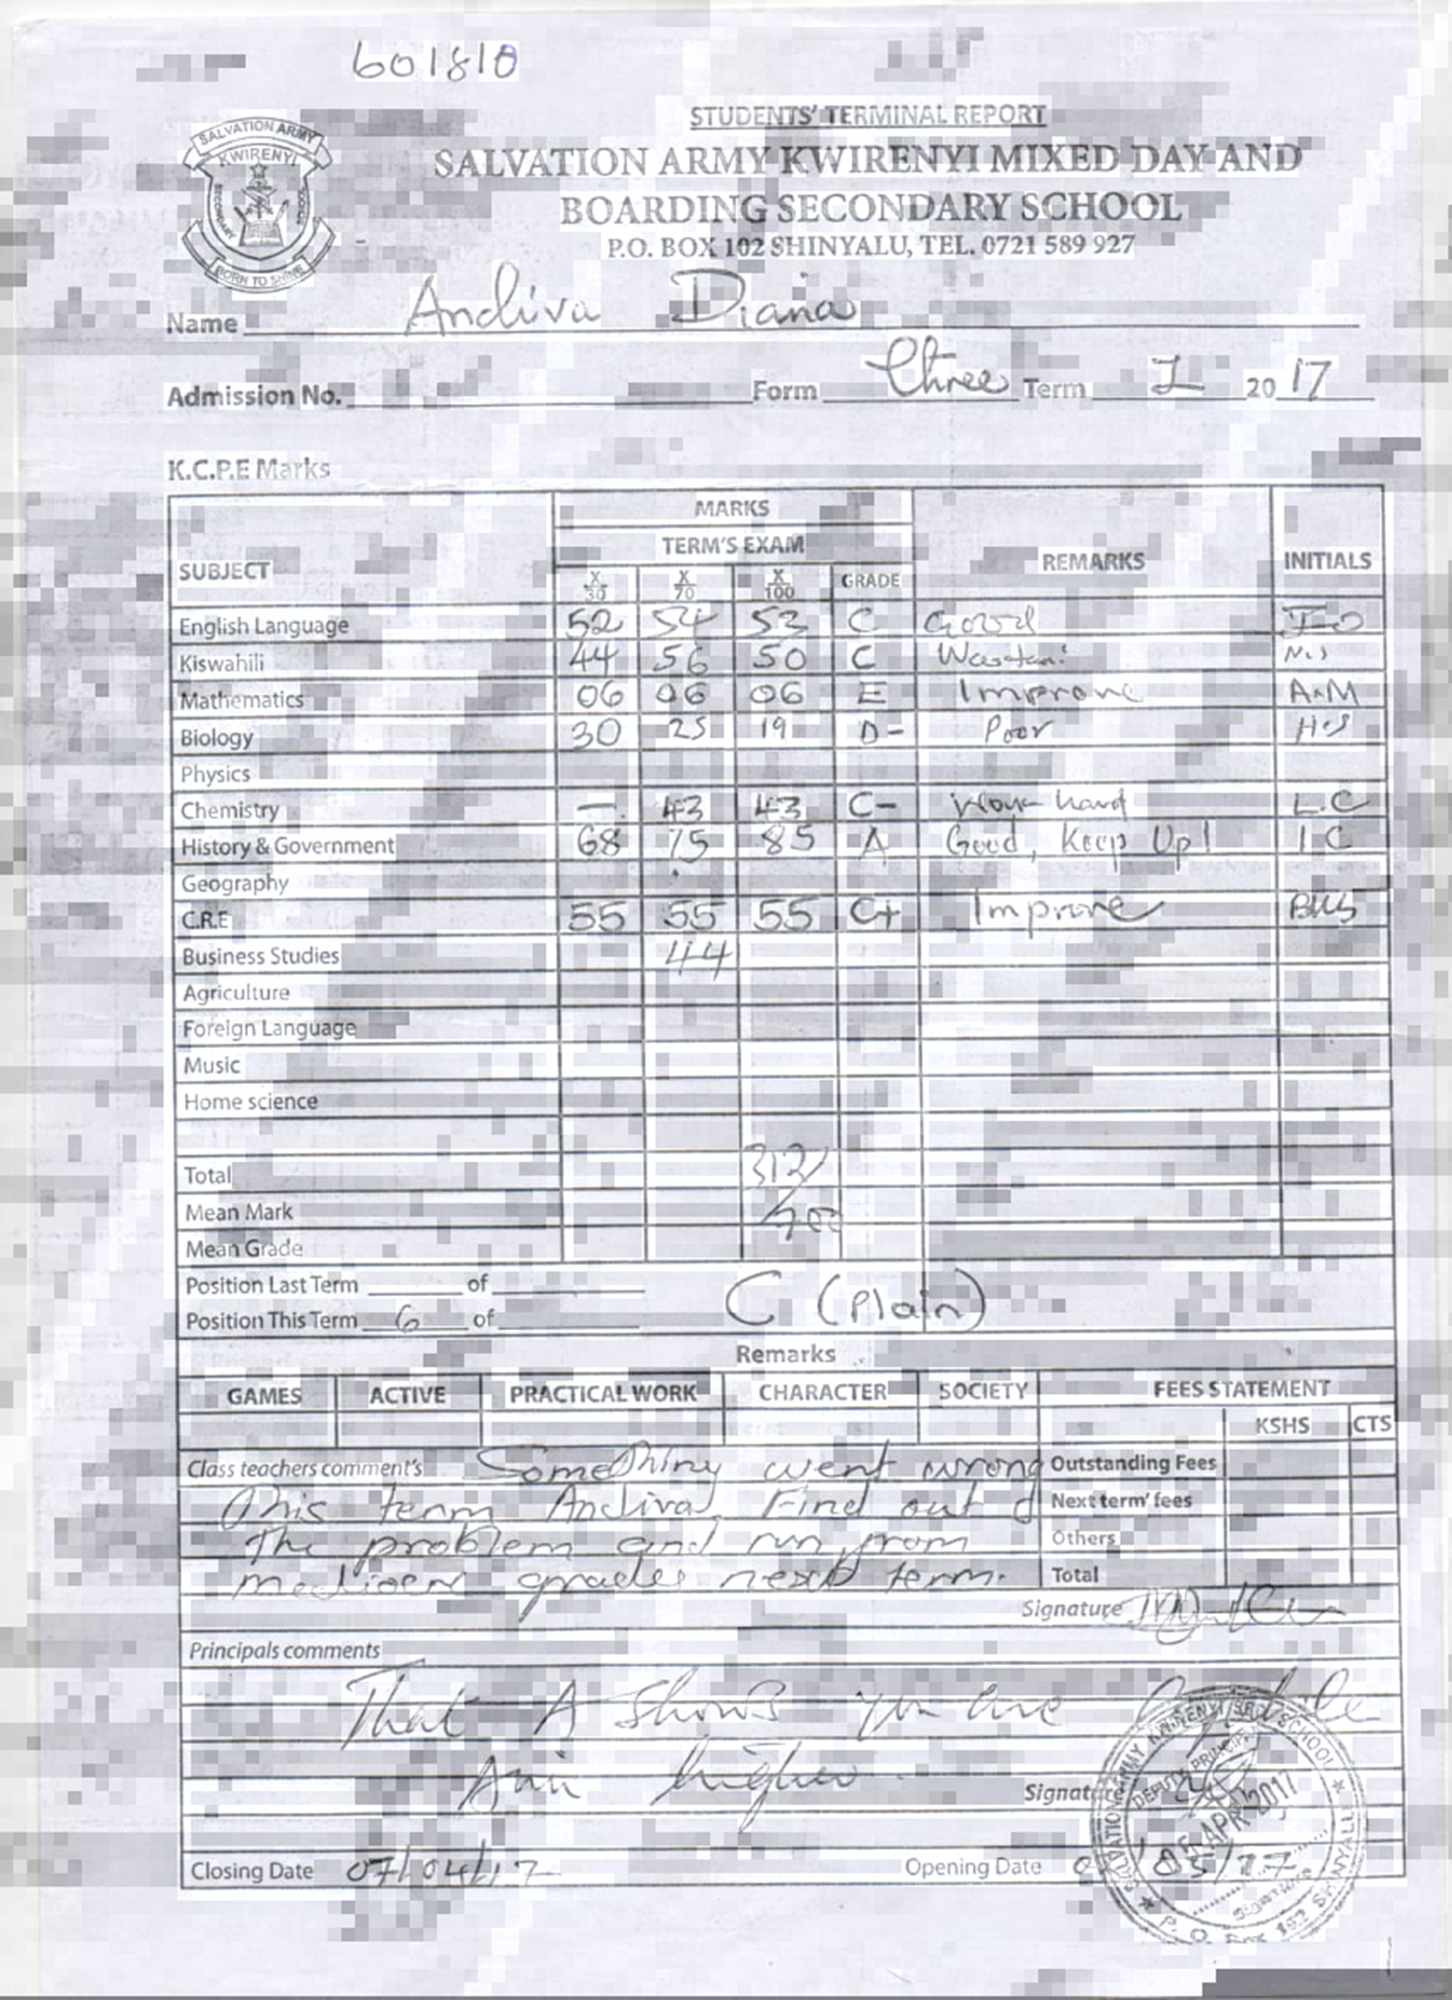 601810
STUDENTS' TERMINAL REPORT
SALVATION ARMY KWIRENYI MIXED DAY AND
BOARDING SECONDARY SCHOOL
P.O. BOX 102 SHINYALU, TEL. 0721 589 927
SALVATION ARMY
KWIRENYI
SECONDARY SCHOOL
BORN TO SHINE
Name Andiva Diana
Admission No. Form Three Term I 2017
K.C.P.E Marks
SUBJECT MARKS REMARKS INITIALS
TERM'S EXAM
X/30 X/70 X/100 GRADE
English Language 52 54 53 C Good J-O
Kiswahili 44 56 50 C Wastani N.S
Mathematics 06 06 06 E Improve A.M
Biology 30 25 19 D- Poor H.S
Physics
Chemistry — 43 43 C- Work hard L.C
History & Government 68 75 85 A Good, Keep Up! I C
Geography
C.R.E 55 55 55 C+ Improve
Business Studies 44
Agriculture
Foreign Language
Music
Home science
Total 312/
Mean Mark 700
Mean Grade
Position Last Term of
Position This Term 6 of
C (Plain)
Remarks
GAMES ACTIVE PRACTICAL WORK CHARACTER SOCIETY FEES STATEMENT
KSHS CTS
Class teachers comment's Something went wrong Outstanding Fees
This term Andiva. Find out Next term' fees
The problem and run from Others
grades next term. Total
Signature
Principals comments
That A shows you are
Aim higher.
Signature
DEPUTY PRINCIPAL
APR 2017
Closing Date 07/04/17 Opening Date /05/17
SALVATION ARMY KWIRENYI SEC. SCHOOL
P. O. Box 102 SHINYALU